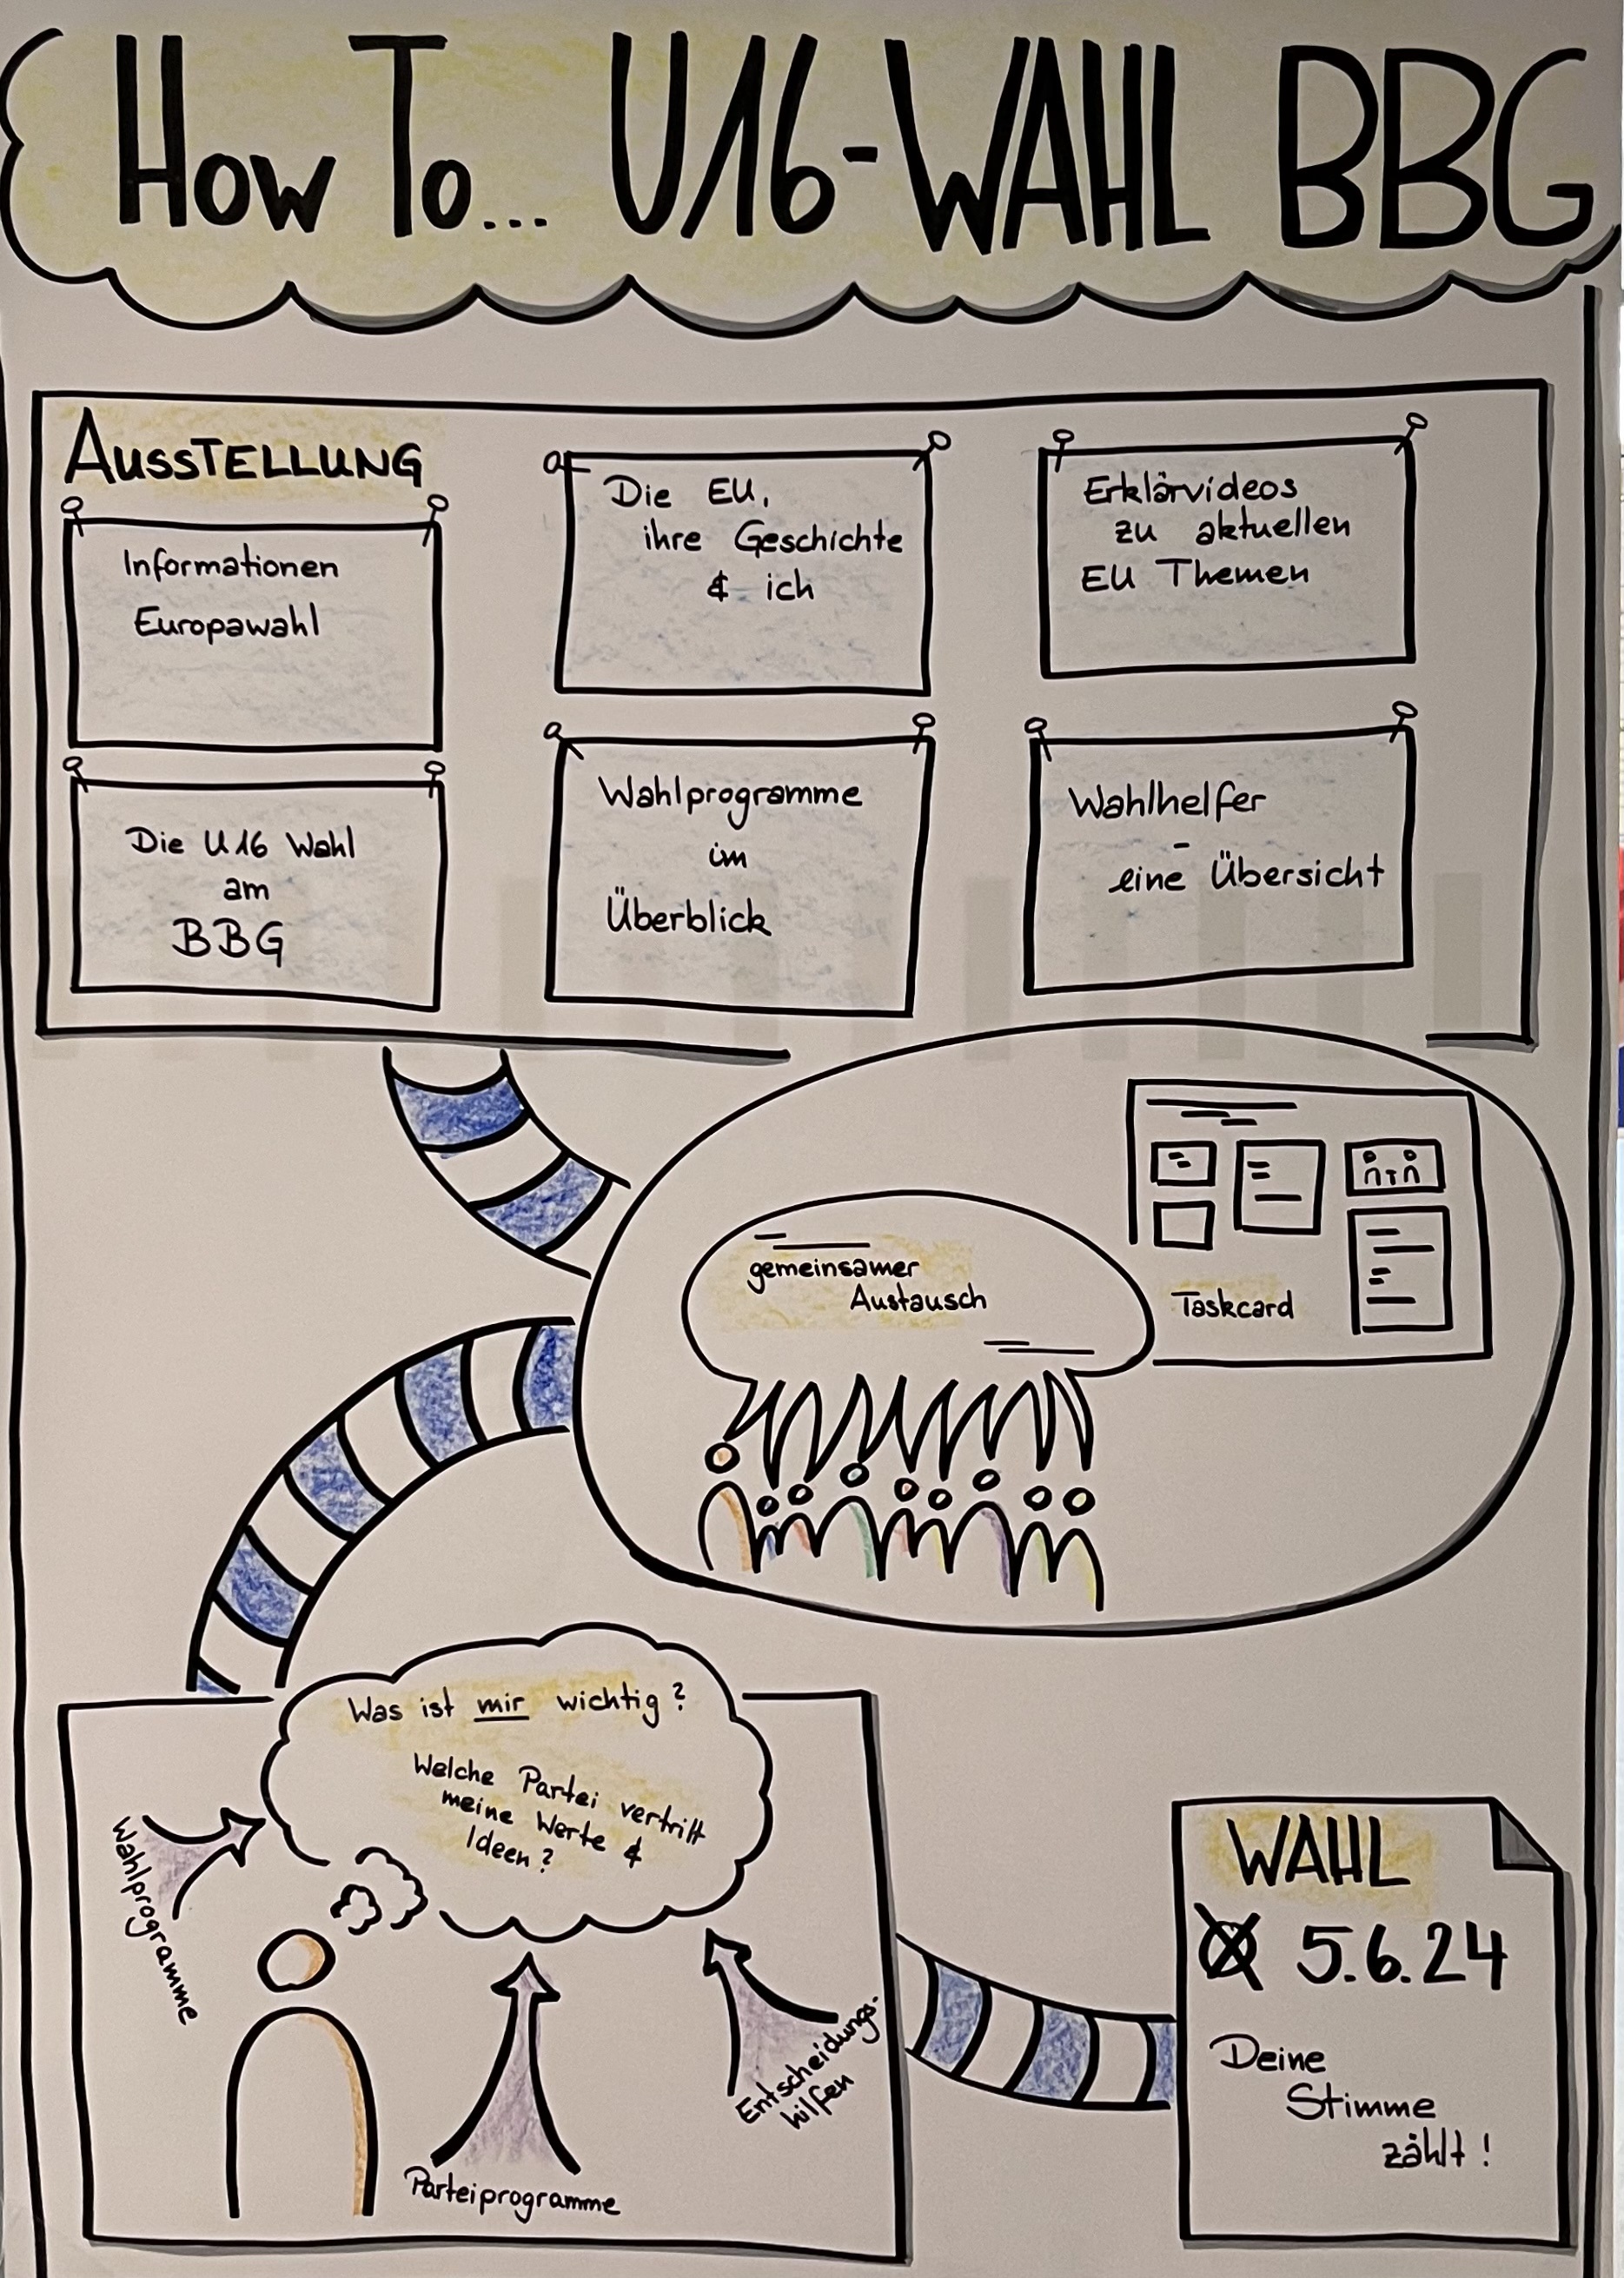 How To... U16-WAHL BBG
AUSSTELLUNG
Informationen
Europawahl
Die EU,
ihre Geschichte
& ich
Erklärvideos
zu aktuellen
EU Themen
Die U16 Wahl
am
BBG
Wahlprogramme
im
Überblick
Wahlhelfer
-
eine Übersicht
gemeinsamer
Austausch
Taskcard
Was ist mir wichtig?
Welche Partei vertritt
meine Werte &
Ideen?
Wahlprogramme
Parteiprogramme
Entscheidungs-
hilfen
WAHL
5.6.24
Deine
Stimme
zählt!